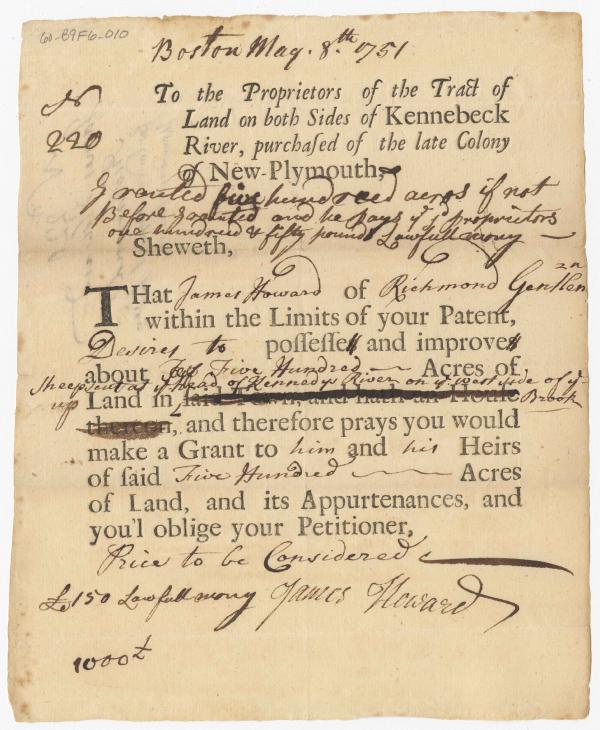 60-B9F6-010
Boston May. 8.th 1751
No
220
To the Proprietors of the Tract of
Land on both Sides of Kennebeck
River, purchased of the late Colony
of New-Plymouth,
Granted five hundreed acres if not
Before granted and he pays ye sd proprietors
one hundred & fifty pounds Lawfull mony
Sheweth,
THat James Howard of Richmond Gentlen
within the Limits of your Patent,
Desires to possesse and improve
about Five Hundred Acres of
Sheepscut at ye head of Kennedys River on ye west side of ye
up Brook
Land in laid Town, and hath an House
thereon, and therefore prays you would
make a Grant to him and his Heirs
of said Five Hundred Acres
of Land, and its Appurtenances, and
you'l oblige your Petitioner,
Price to be Considered
£150 Lawfull mony James Howard
1000£